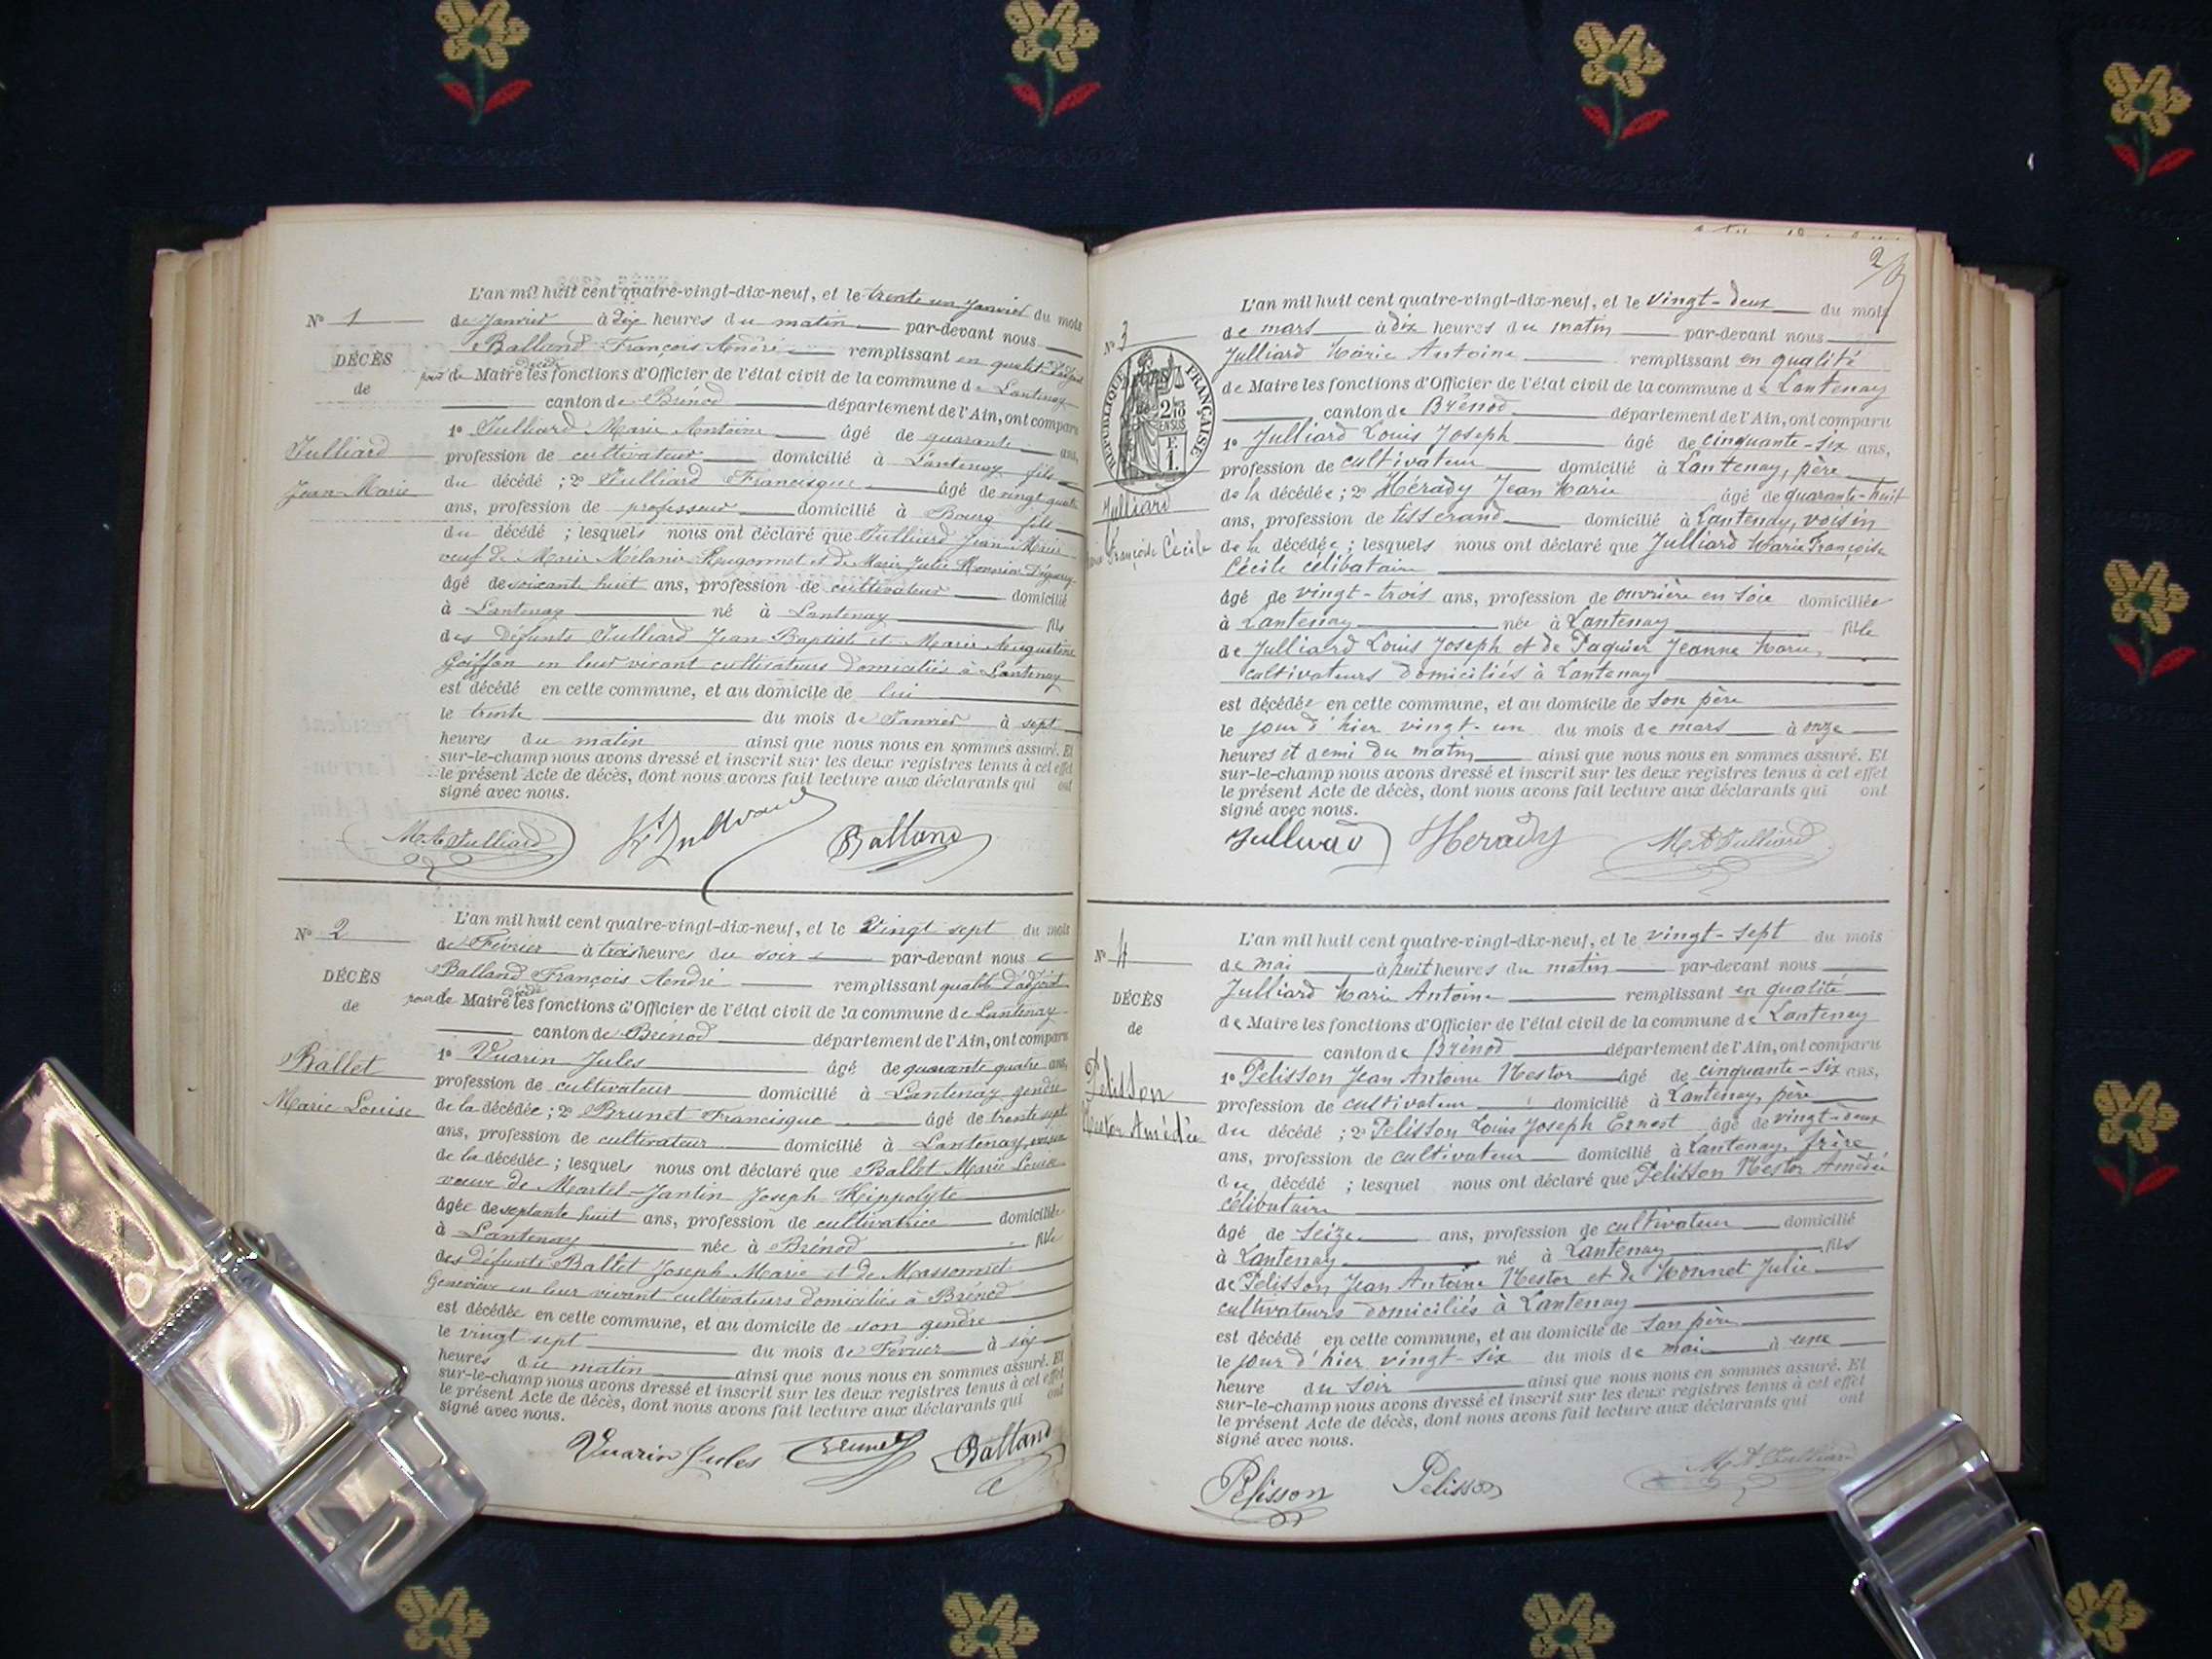 L'an mil huit cent quatre-vingt-dix-neuf, et le trente un Janvier du mois
N° 1 de Janvier à dix heures du matin par-devant nous
Balland François André remplissant en qualité d'adjoint
DÉCÈS pour de Maire décédé les fonctions d'Officier de l'état civil de la commune de Lantenay
de canton de Brénod département de l'Ain, ont comparu
1° Julliard Marie Antoine âgé de quarante ans,
Julliard profession de cultivateur domicilié à Lantenay fils
Jean-Marie du décédé ; 2° Julliard Francisque âgé de vingt quatre
ans, profession de professeur domicilié à Bourg fils
du décédé ; lesquels nous ont déclaré que Julliard Jean Marie
veuf de Marie Mélanie Hugonnet et de Marie Julie
âgé de soixante huit ans, profession de cultivateur domicilié
à Lantenay né à Lantenay fils
des défunts Julliard Jean Baptiste et Marie Augustine
Goiffon en leur vivant cultivateurs domiciliés à Lantenay
est décédé en cette commune, et au domicile de lui
le trente du mois de Janvier à sept
heures du matin ainsi que nous nous en sommes assuré. Et
sur-le-champ nous avons dressé et inscrit sur les deux registres tenus à cet effet
le présent Acte de décès, dont nous avons fait lecture aux déclarants qui ont
signé avec nous.
M. A. Julliard Julliard Balland
L'an mil huit cent quatre-vingt-dix-neuf, et le Vingt sept du mois
N° 2 de Février à trois heures du soir par-devant nous
Balland François André remplissant qualité d'adjoint
DÉCÈS pour de Maire décédé les fonctions d'Officier de l'état civil de la commune de Lantenay
de canton de Brénod département de l'Ain, ont comparu
1° Vuarin Jules âgé de quarante quatre ans,
Ballet profession de cultivateur domicilié à Lantenay gendre
Marie Louise de la décédée ; 2° Brunet Francisque âgé de trente sept
ans, profession de cultivateur domicilié à Lantenay, voisin
de la décédée ; lesquels nous ont déclaré que Ballet Marie Louise
veuve de Martel-Jantin Joseph Hippolyte
âgée de septante huit ans, profession de cultivatrice domiciliée
à Lantenay née à Brénod fille
des défunts Ballet Joseph Marie et de Massonnet
Geneviève en leur vivant cultivateurs domiciliés à Brénod
est décédée en cette commune, et au domicile de son gendre
le vingt sept du mois de Février à six
heures du matin ainsi que nous nous en sommes assuré. Et
sur-le-champ nous avons dressé et inscrit sur les deux registres tenus à cet effet
le présent Acte de décès, dont nous avons fait lecture aux déclarants qui ont
signé avec nous.
Vuarin Jules Brunet Balland
2
L'an mil huit cent quatre-vingt-dix-neuf, et le vingt-deux du mois
N° 3 de mars à dix heures du matin par-devant nous
Julliard Marie Antoine remplissant en qualité
RÉPUBLIQUE FRANÇAISE
de Maire les fonctions d'Officier de l'état civil de la commune de Lantenay
canton de Brénod département de l'Ain, ont comparu
1° Julliard Louis Joseph âgé de cinquante-six ans,
profession de cultivateur domicilié à Lantenay, père
de la décédée ; 2° Hérady Jean Marie âgé de quarante-huit
Julliard ans, profession de tisserand domicilié à Lantenay, voisin
Marie Françoise Cécile de la décédée ; lesquels nous ont déclaré que Julliard Marie Françoise
Cécile célibataire
âgé de vingt-trois ans, profession de ouvrière en soie domiciliée
à Lantenay née à Lantenay fille
de Julliard Louis Joseph et de Paquier Jeanne Marie,
cultivateurs domiciliés à Lantenay
est décédée en cette commune, et au domicile de son père
le jour d'hier vingt-un du mois de mars à onze
heures et demi du matin ainsi que nous nous en sommes assuré. Et
sur-le-champ nous avons dressé et inscrit sur les deux registres tenus à cet effet
le présent Acte de décès, dont nous avons fait lecture aux déclarants qui ont
signé avec nous.
Julliard Herady M A Julliard
L'an mil huit cent quatre-vingt-dix-neuf, et le vingt-sept du mois
N° 4 de mai à huit heures du matin par-devant nous
Julliard Marie Antoine remplissant en qualité
DÉCÈS de Maire les fonctions d'Officier de l'état civil de la commune de Lantenay
de canton de Brénod département de l'Ain, ont comparu
Pelisson 1° Pelisson Jean Antoine Nestor âgé de cinquante-six ans,
profession de cultivateur domicilié à Lantenay, père
Nestor Amédée du décédé ; 2° Pelisson Louis Joseph Ernest âgé de vingt-deux
ans, profession de cultivateur domicilié à Lantenay, frère
du décédé ; lesquel nous ont déclaré que Pelisson Nestor Amédée
célibataire
âgé de seize ans, profession de cultivateur domicilié
à Lantenay né à Lantenay fils
de Pelisson Jean Antoine Nestor et de Monnet Julie
cultivateurs domiciliés à Lantenay
est décédé en cette commune, et au domicile de son père
le jour d'hier vingt-six du mois de mai à une
heure du soir ainsi que nous nous en sommes assuré. Et
sur-le-champ nous avons dressé et inscrit sur les deux registres tenus à cet effet
le présent Acte de décès, dont nous avons fait lecture aux déclarants qui ont
signé avec nous.
Pelisson Pelisson M A Julliard